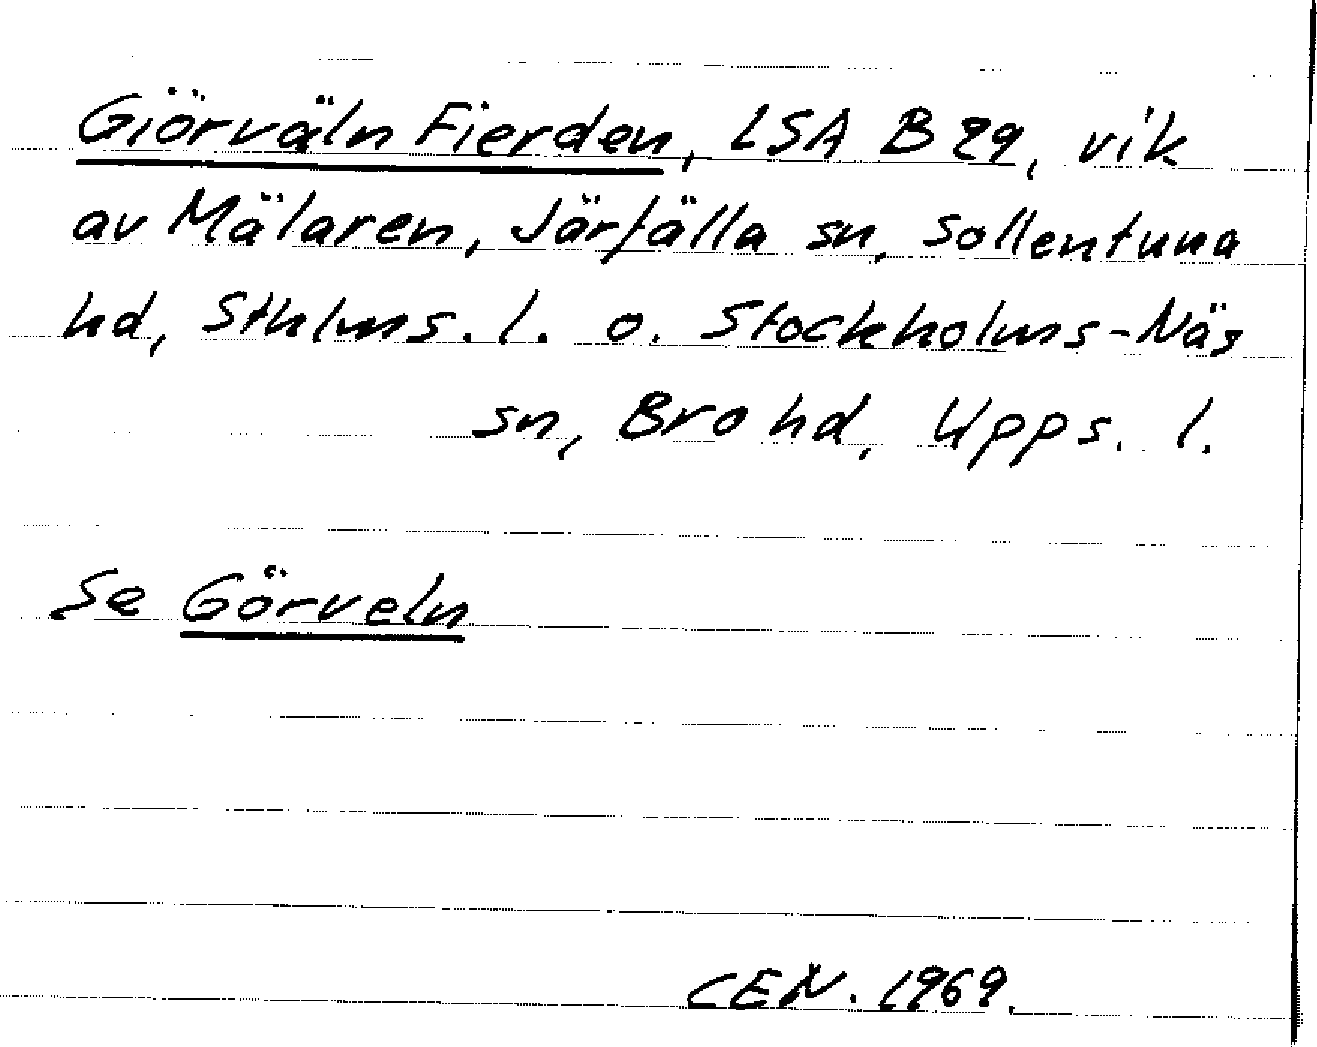 Giörväln Fierden, LSA B 29, vik
av Mälaren, Järfälla sn, Sollentuna
hd, Sthlms. l. o. Stockholms-Näs
sn, Bro hd, Upps. l.
Se Görveln
CEN. 1969.